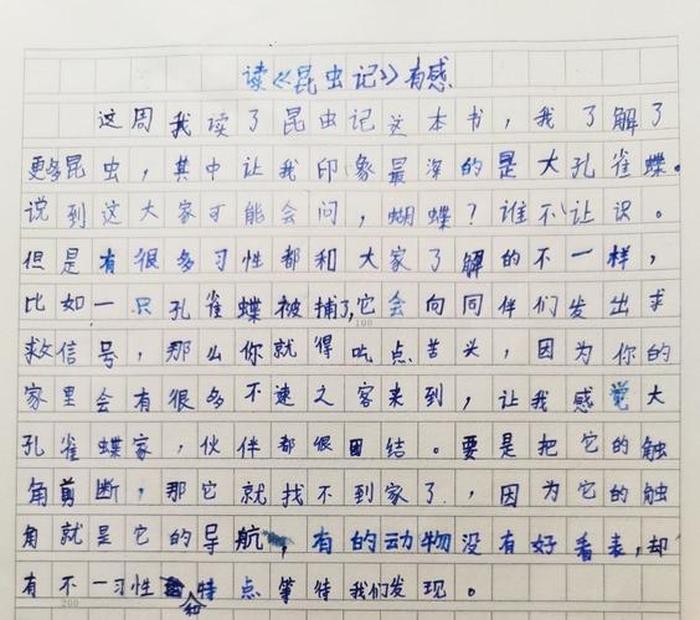 读《昆虫记》有感
这周我读了昆虫记这本书，我了解了
更多昆虫，其中让我印象最深的是大孔雀蝶。
说到这大家可能会问，蝴蝶？谁不让识。
但是有很多习性都和大家了解的不一样，
比如一只孔雀蝶被捕了，它会向同伴们发出求
100
救信号，那么你就得吃点苦头，因为你的
家里会有很多不速之客来到，让我感觉大
孔雀蝶家，伙伴都很团结。要是把它的触
角剪断，那它就找不到家了，因为它的触
角就是它的导航，有的动物没有好看表，却
有不一习性和特点等待我们发现。
200